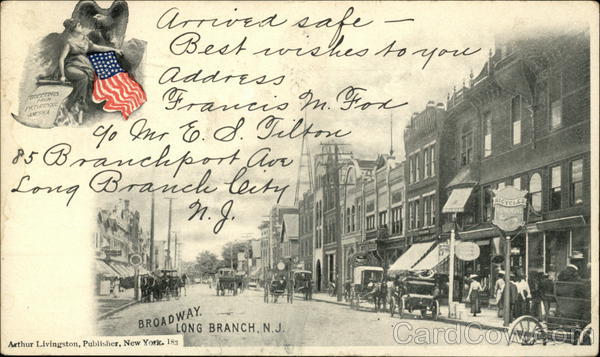 Arrived safe —
Best wishes to you
Address
Francis M. Fox
c/o Mr E. S. Tilton
85 Branchport Ave
Long Branch City
N. J.
GREETINGS
FROM
PICTURESQUE
AMERICA
BICYCLES
BROADWAY.
LONG BRANCH, N.J.
Arthur Livingston, Publisher, New York. 183
CardCow.com